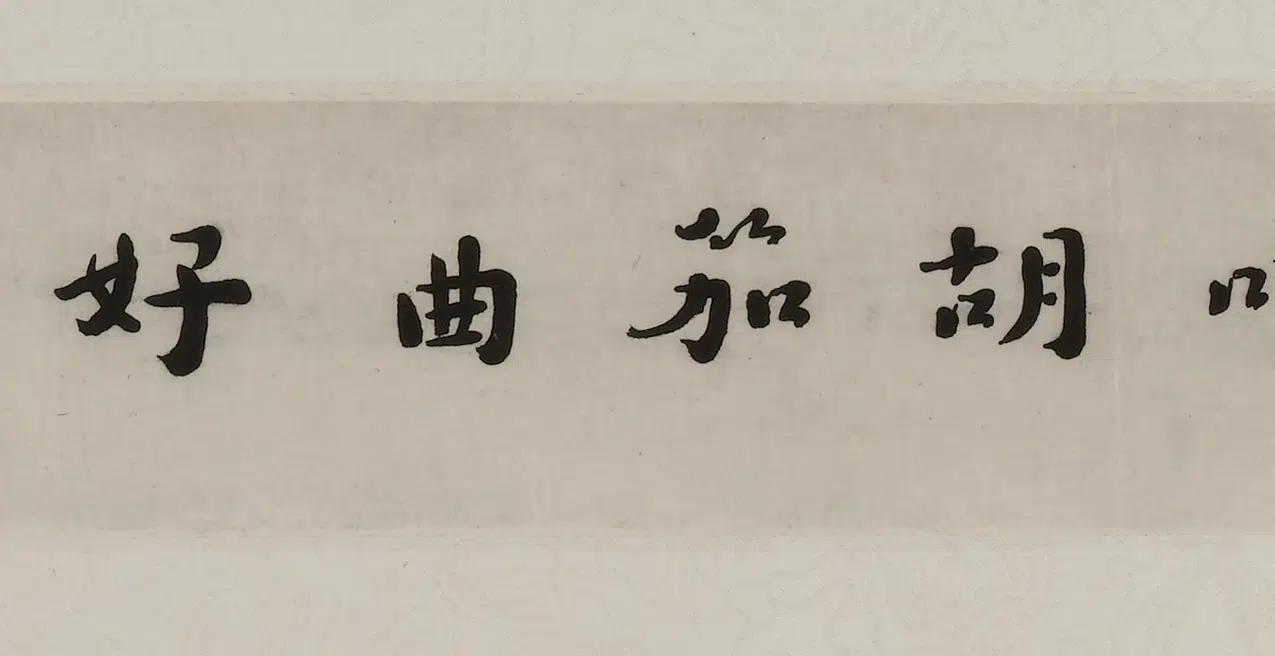 胡笳曲好